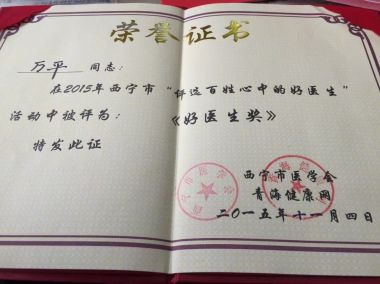 荣誉证书
万平 同志：
在2015年西宁市“评选百姓心中的好医生”
活动中被评为：《好医生奖》
特发此证
西宁市医学会
青海健康网
二〇一五年十一月四日